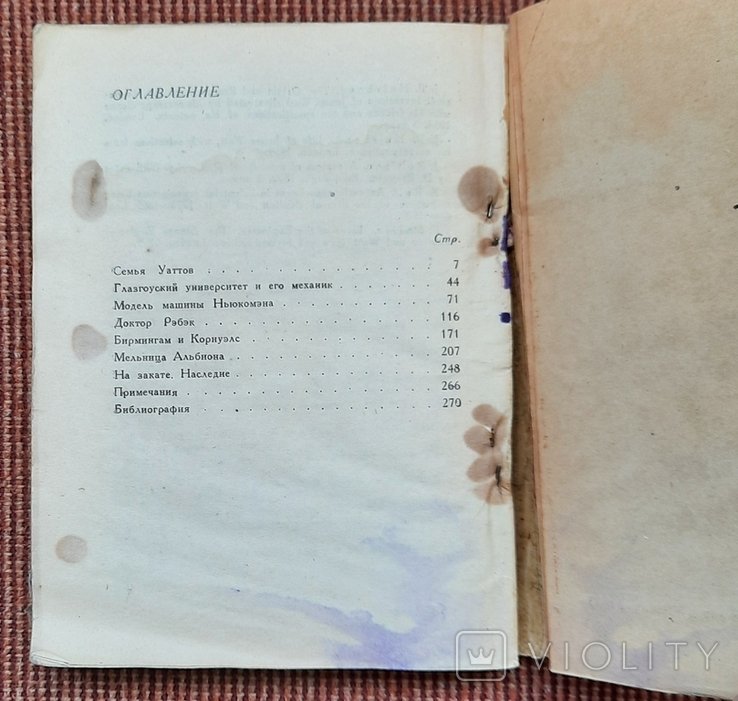 ОГЛАВЛЕНИЕ
Стр.
Семья Уаттов . . . . . . . . . . . . . . . 7
Глазгоуский университет и его механик . . . . . . . 44
Модель машины Ньюкомэна . . . . . . . . . . . 71
Доктор Рэбэк . . . . . . . . . . . . . . . 116
Бирмингам и Корнуэлс . . . . . . . . . . . . 171
Мельница Альбиона . . . . . . . . . . . . . 207
На закате. Наследие . . . . . . . . . . . . . 248
Примечания . . . . . . . . . . . . . . . . 266
Библиография . . . . . . . . . . . . . . . 270
VIOLITY